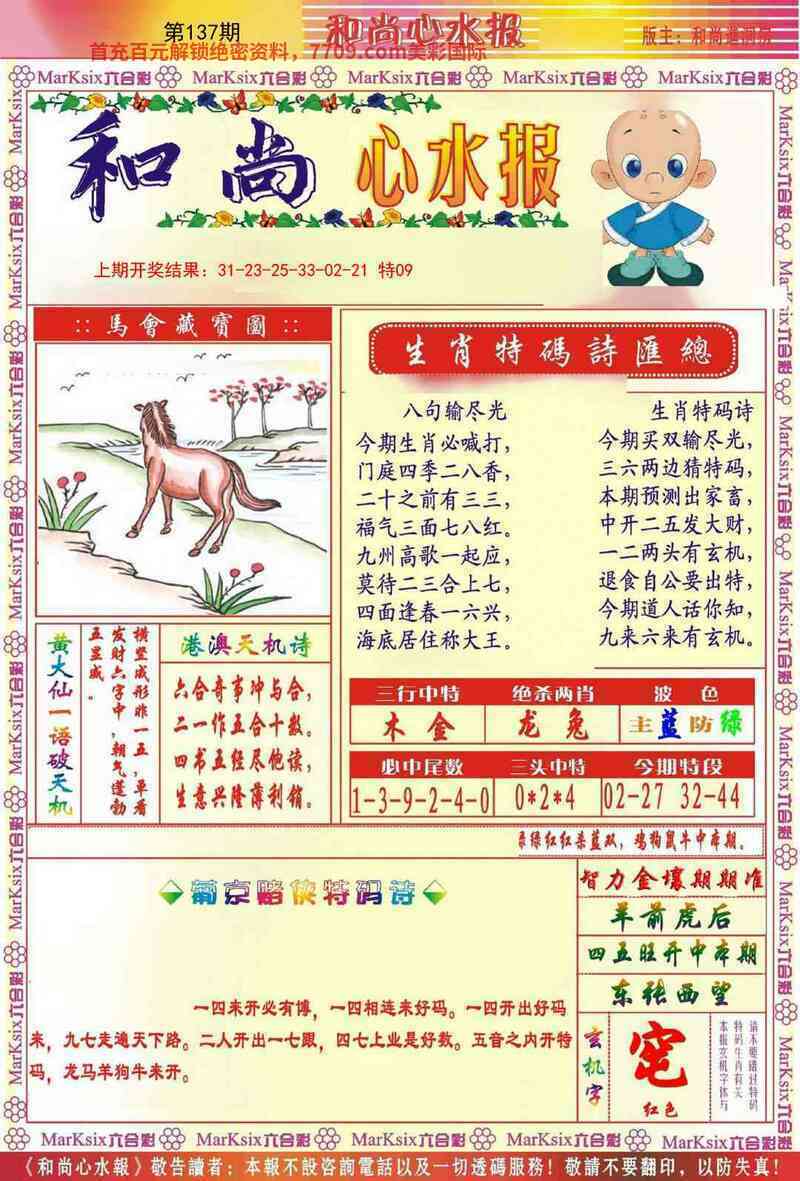 第137期
和尚心水报
首充百元解锁绝密资料，7709.com美彩国际
MarKsix六合彩 MarKsix六合彩 MarKsix六合彩 MarKsix六合彩 MarKsix六合彩
和尚 心水报
上期开奖结果：31-23-25-33-02-21 特09
::馬會藏寶圖::
生肖特碼詩匯總
八句输尽光
今期生肖必喊打，
门庭四季二八香，
二十之前有三三，
福气三面七八红。
九州高歌一起应，
莫待二三合上七，
四面逢春一六兴，
海底居住称大王。
生肖特码诗
今期买双输尽光，
三六两边猜特码，
本期预测出家畜，
中开二五发大财，
一二两头有玄机，
退食自公要出特，
今期道人话你知，
九来六来有玄机。
黄大仙一语破天机
横竖成形非一五，单看
发财六字中，朝气蓬勃
五星威。
港澳天机诗
六合奇事冲与合，
二一作五合十数。
四书五经尽他读，
生意兴隆薄利销。
三行中特
木 金
绝杀两肖
龙 兔
波 色
主蓝防绿
必中尾数
1-3-9-2-4-0
三头中特
0*2*4
今期特段
02-27 32-44
绿红红杀蓝双，鸡狗鼠牛中本期。
葡京赌侠特码诗
一四来开必有博，一四相连来好码。一四开出好码
来，九七走通天下路。二人开出一七跟，四七上业是好数。五音之内开特
码，龙马羊狗牛来开。
智力金壤期期准
羊前虎后
四五旺开中本期
东张西望
玄机字
红色
请不要错过特码
特码生肖有关
本报玄机字体与
MarKsix六合彩 MarKsix六合彩 MarKsix六合彩 MarKsix六合彩 MarKsix六合彩
《和尚心水報》敬告讀者：本報不設咨詢電話以及一切透碼服務！敬請不要翻印，以防失真！